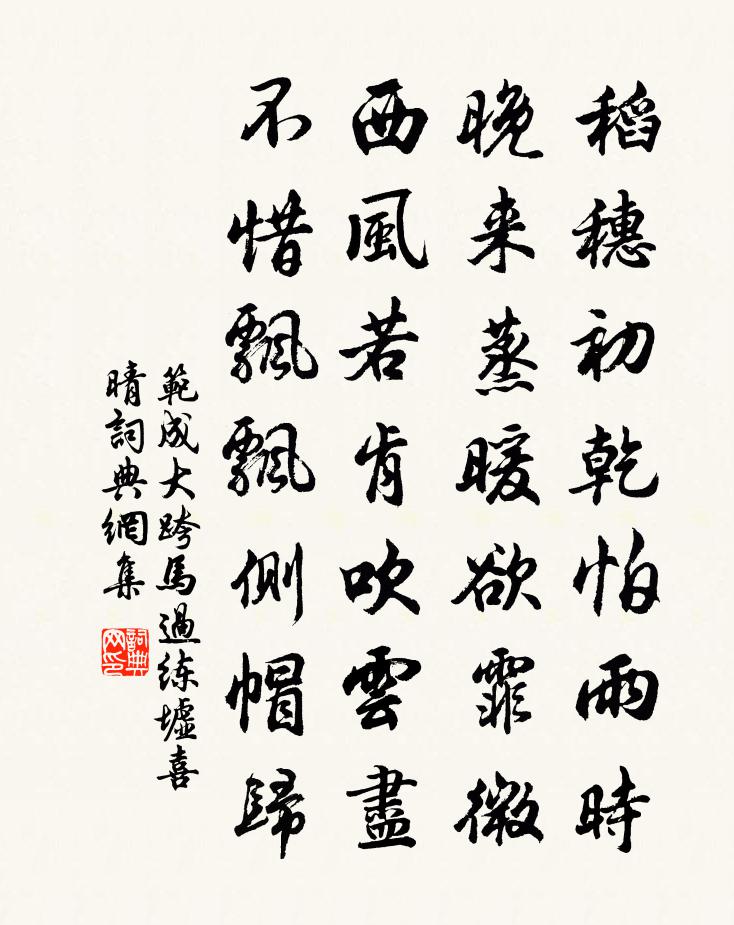 稻穗初乾怕雨時
晚来蒸暖欲霏微
西風若肯吹雲盡
不惜飄飄側帽歸
範成大跨馬過练墟喜
晴詞典網集
詞典网印